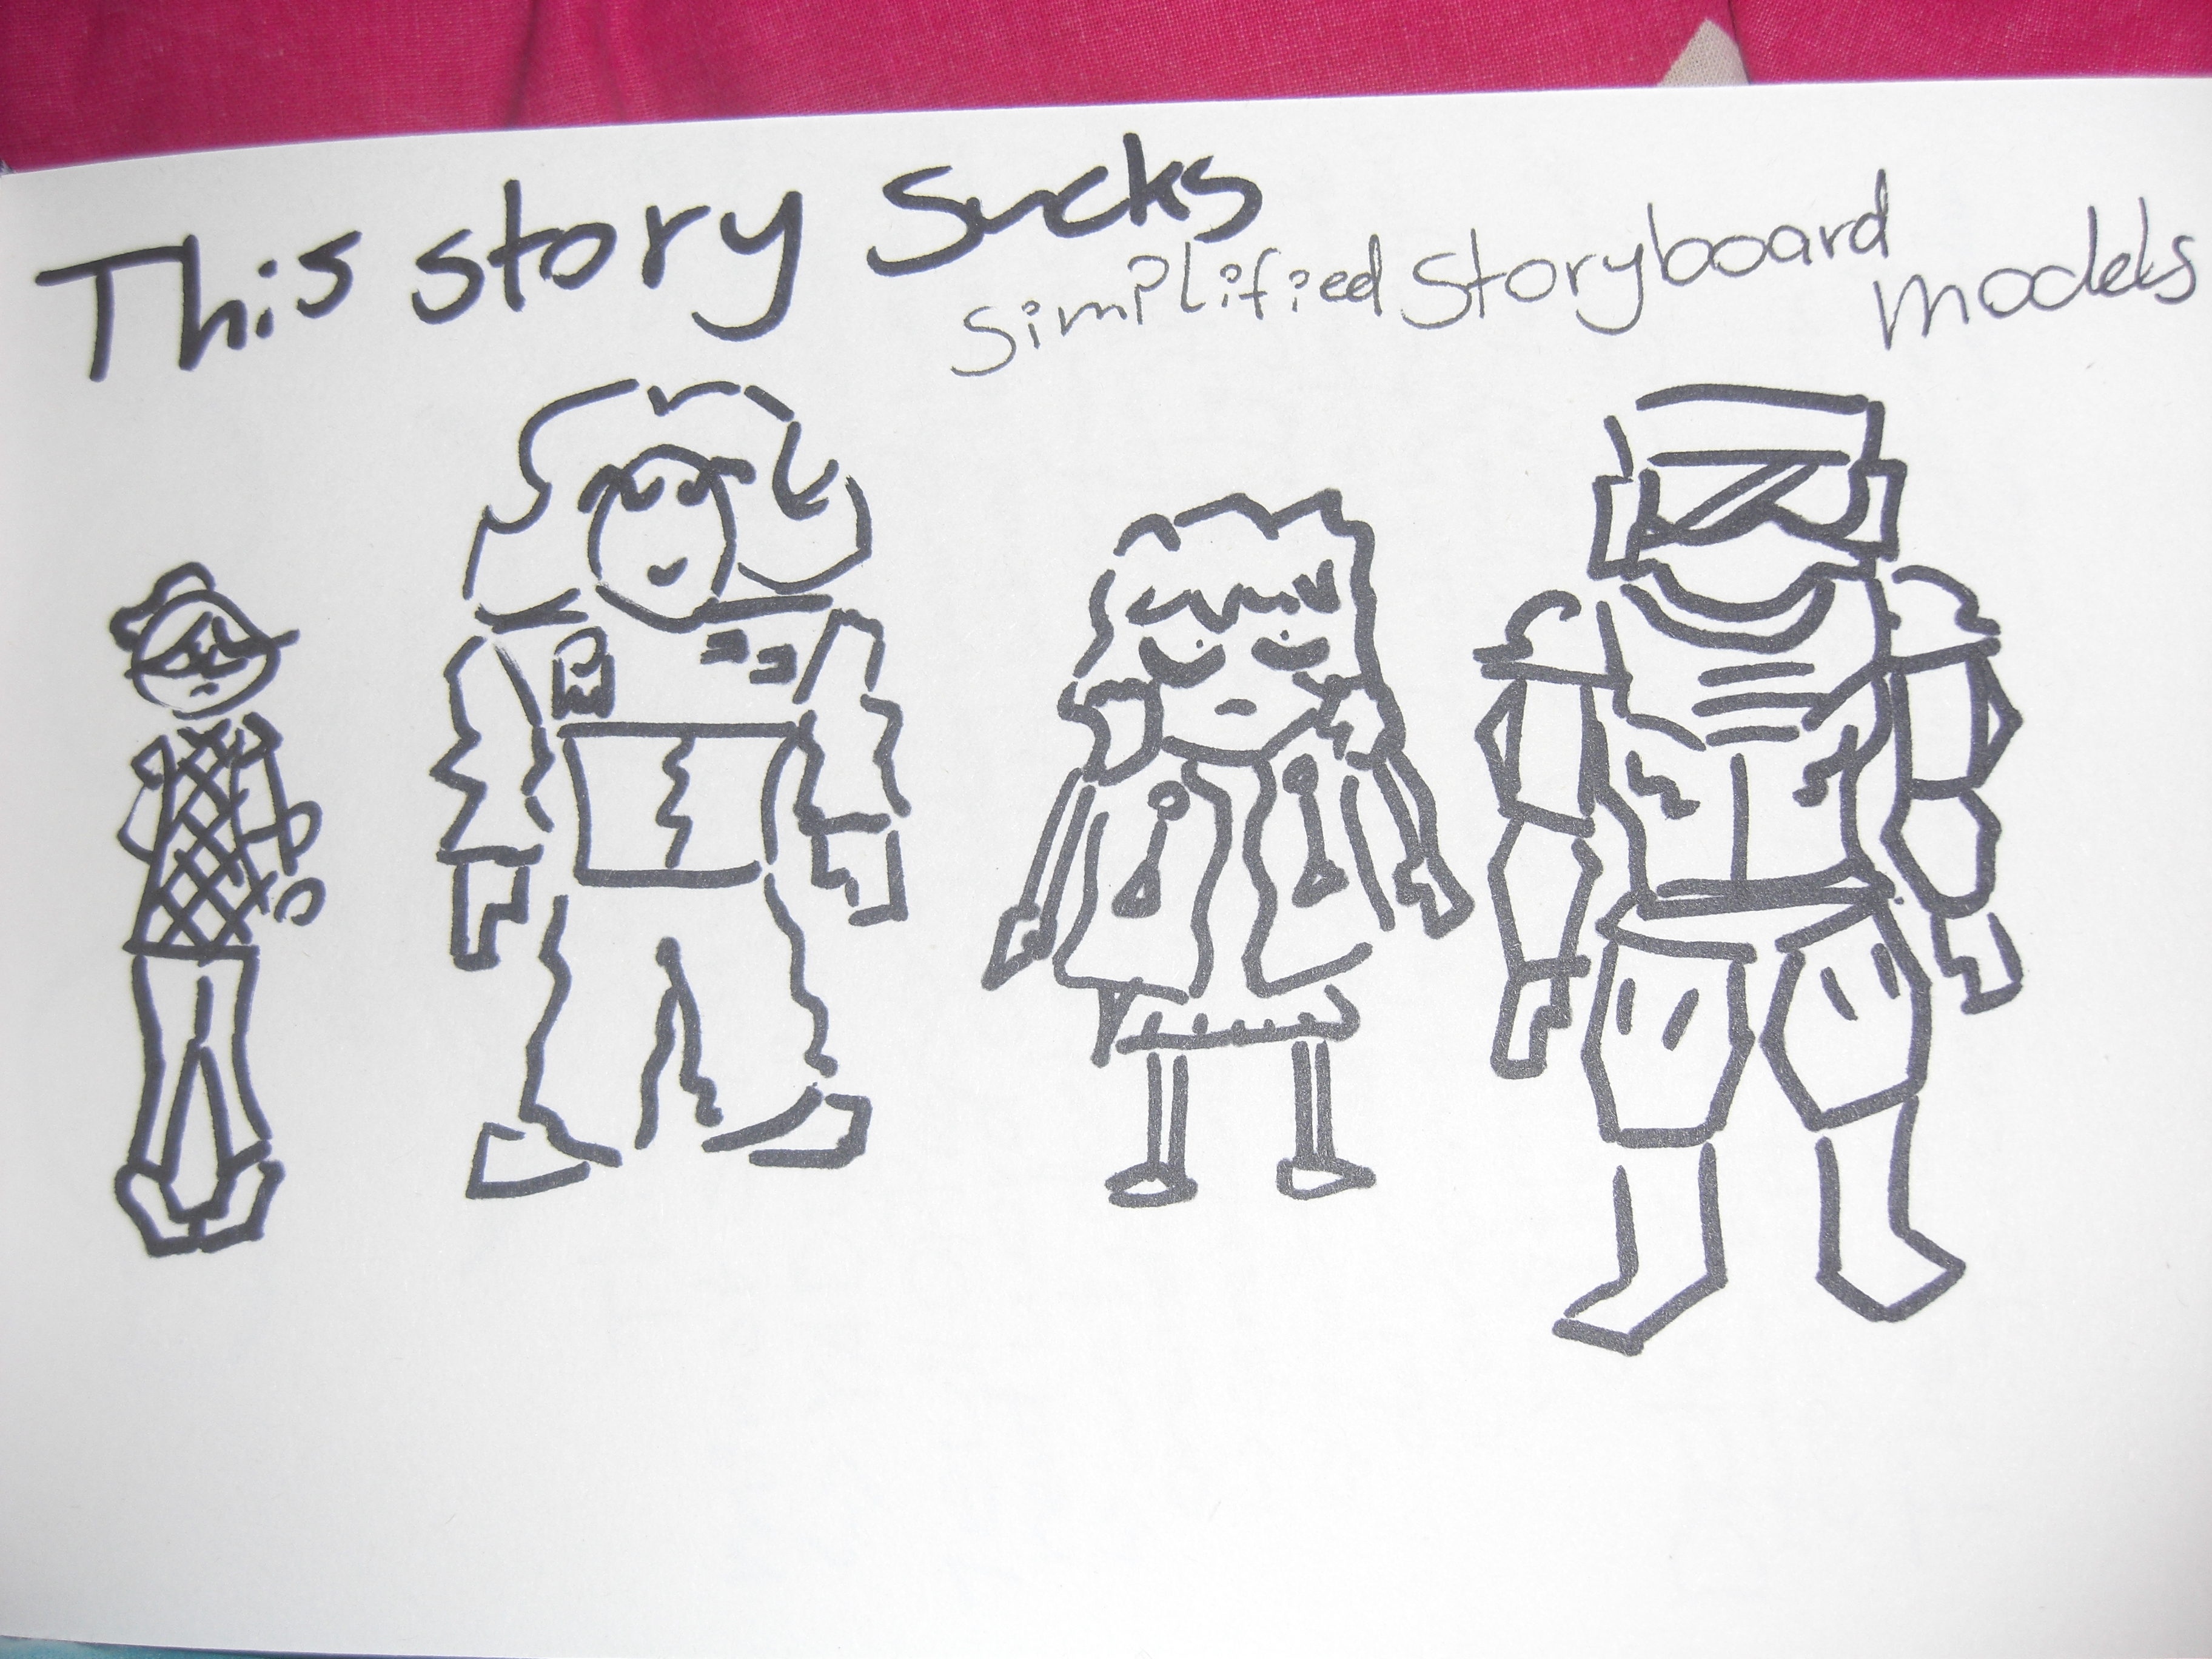 This story sucks
simplified storyboard
models